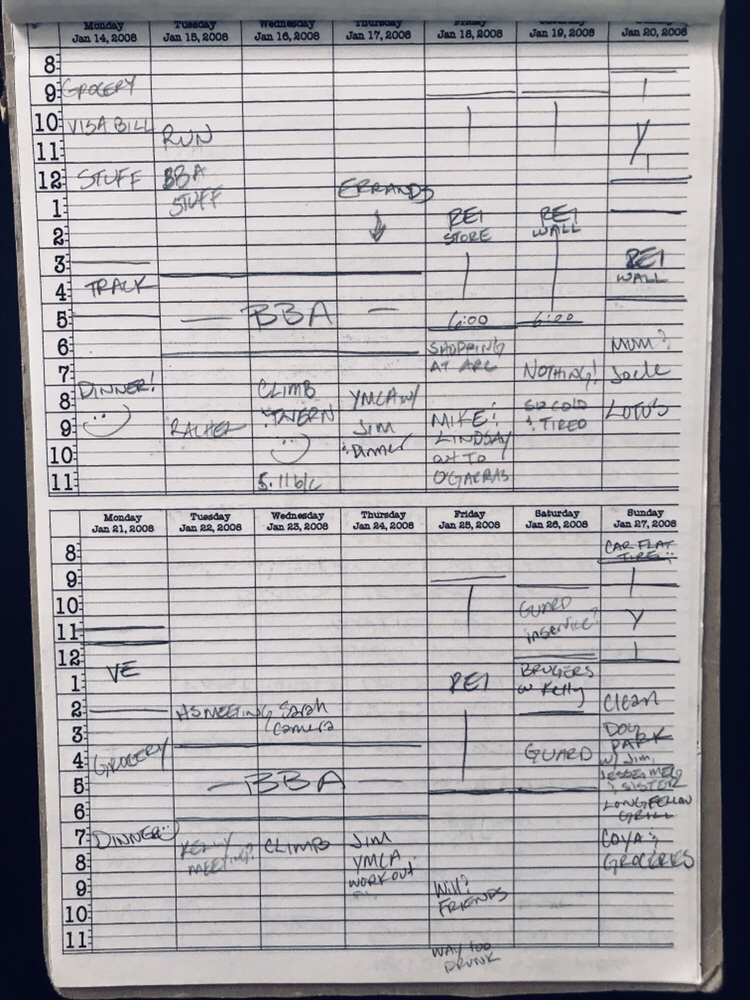 Monday Tuesday Wednesday Thursday Friday Saturday
Jan 14, 2008 Jan 15, 2008 Jan 16, 2008 Jan 17, 2008 Jan 18, 2008 Jan 19, 2008 Jan 20, 2008
8
9 GROCERY
10 VISA BILL RUN
11 Y
12 STUFF BBA
1 STUFF ERRANDS
REI REI
2 STORE WALL
3 REI
4 TRACK WALL
5 BBA 6:00 6:00
6 SHOPPING MUM?
AT ARC
7 NOTHING!
DINNER! CLIMB YMCA W/
8 TAVERN SO COLD LOTUS
9 RACHEL JIM MIKE! & TIRED
& DINNER LINDSAY
10 OUT TO
11 5.11 b/c O'GARAS
Monday Tuesday Wednesday Thursday Friday Saturday Sunday
Jan 21, 2008 Jan 22, 2008 Jan 23, 2008 Jan 24, 2008 Jan 25, 2008 Jan 26, 2008 Jan 27, 2008
8 CAR FLAT
TIRE
9
10 GUARD
inservice? Y
11
12
VE BRUGERS
1 REI w Kelly
2 HS MEETING Sarah Clean
Camera
3 DOG
PARK
4 GROCERY GUARD w/ Jim,
5 BBA & SISTER
LONGFELLOW
6 GRILL
7 DINNER KELLY CLIMB JIM COYA &
MEETING? YMCA GROCERIES
8 WORKOUT
9 Will?
FRIENDS
10
11 WAY TOO
DRUNK